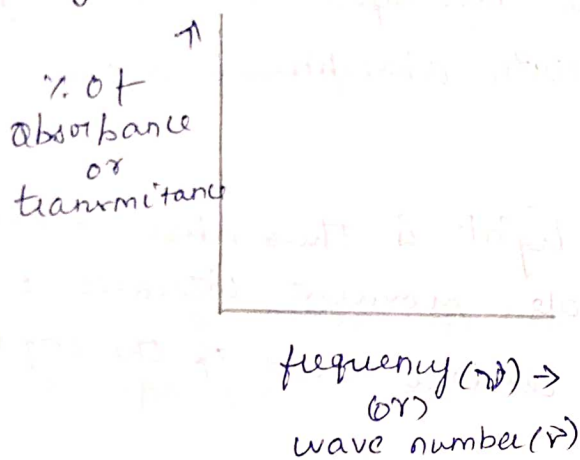 % of
absorbance
or
tranrmitance
frequency (ν) →
(or)
wave number (ν̄)